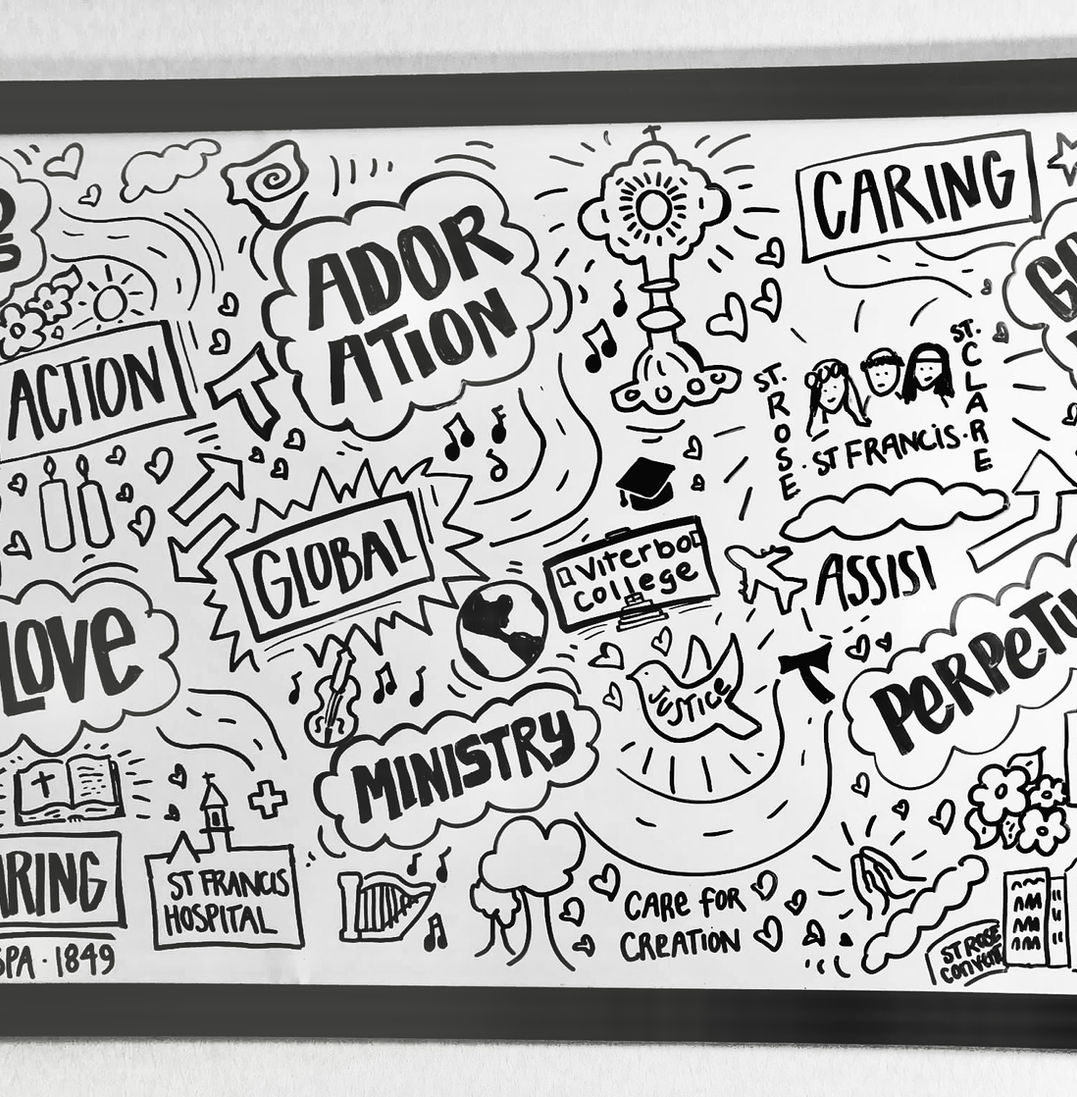 ADOR
ATION
CARING
ACTION
ST.
ROSE
ST FRANCIS
ST.
CLARE
GLOBAL
Viterbo
College
ASSISI
LOVE
JUSTICE
MINISTRY
ST FRANCIS
HOSPITAL
1849
CARE FOR
CREATION
ST ROSE
CONVENT